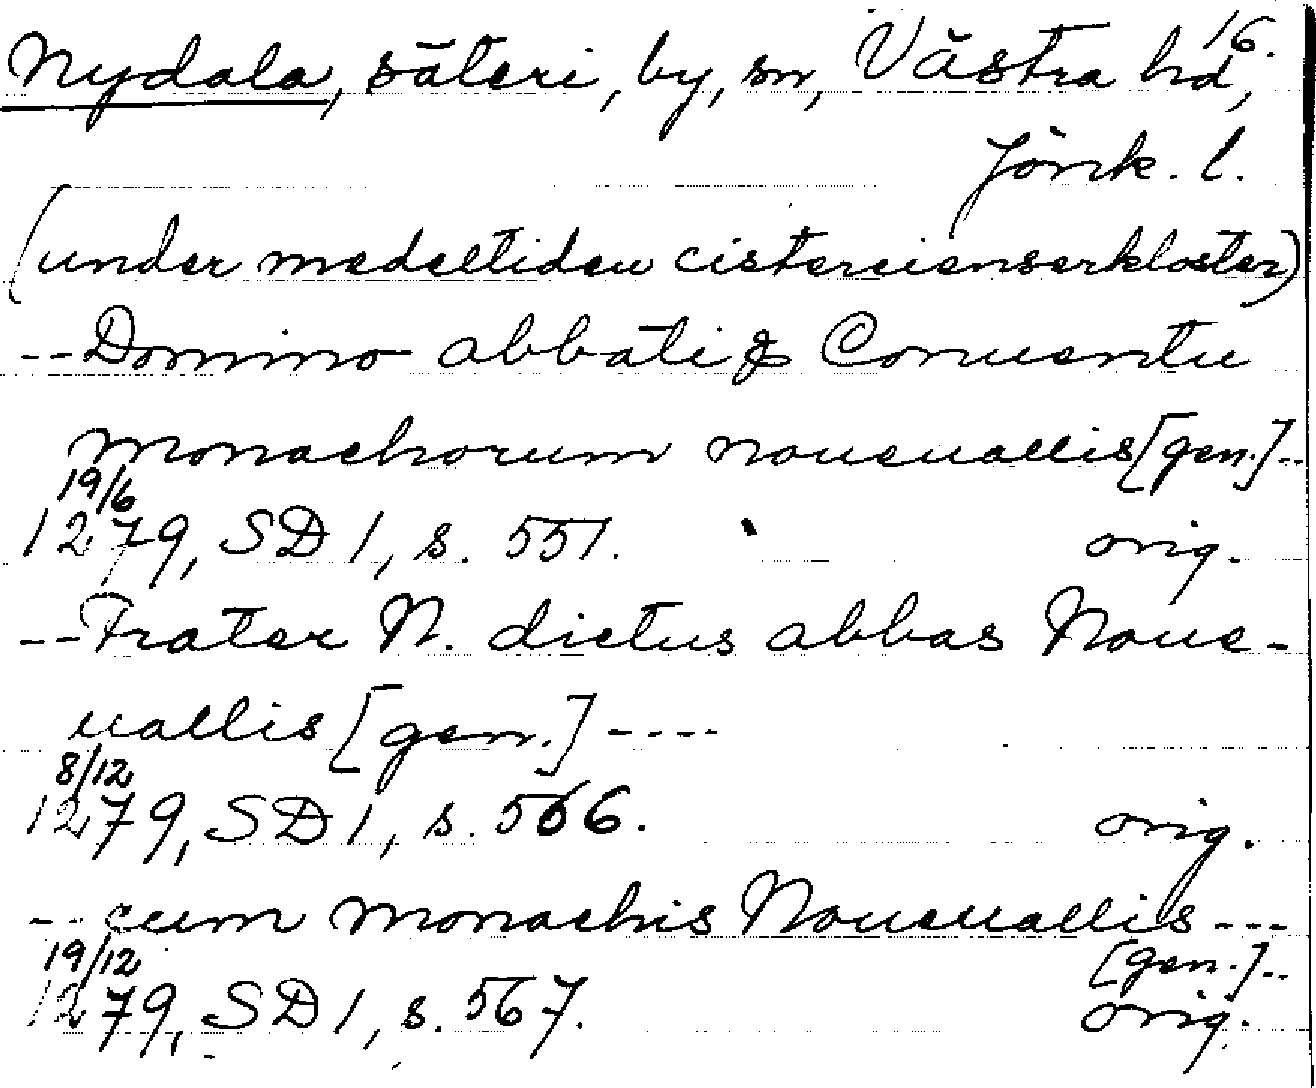 16.
Nydala, säteri, by, sn, Västra hd,
Jönk. l.
(under medeltiden cistercienserkloster)
-- Domino abbati & Conuentu
monachorum noueuallis [gen.]--
19/6
1279, SD 1, s. 551. orig.
-- Frater N. dictus abbas Noue-
uallis [gen.] ----
8/12
1279, SD 1, s. 566. orig.
-- cum monachis Noueuallis ---
19/12 [gen.]--
1279, SD 1, s. 567. orig.